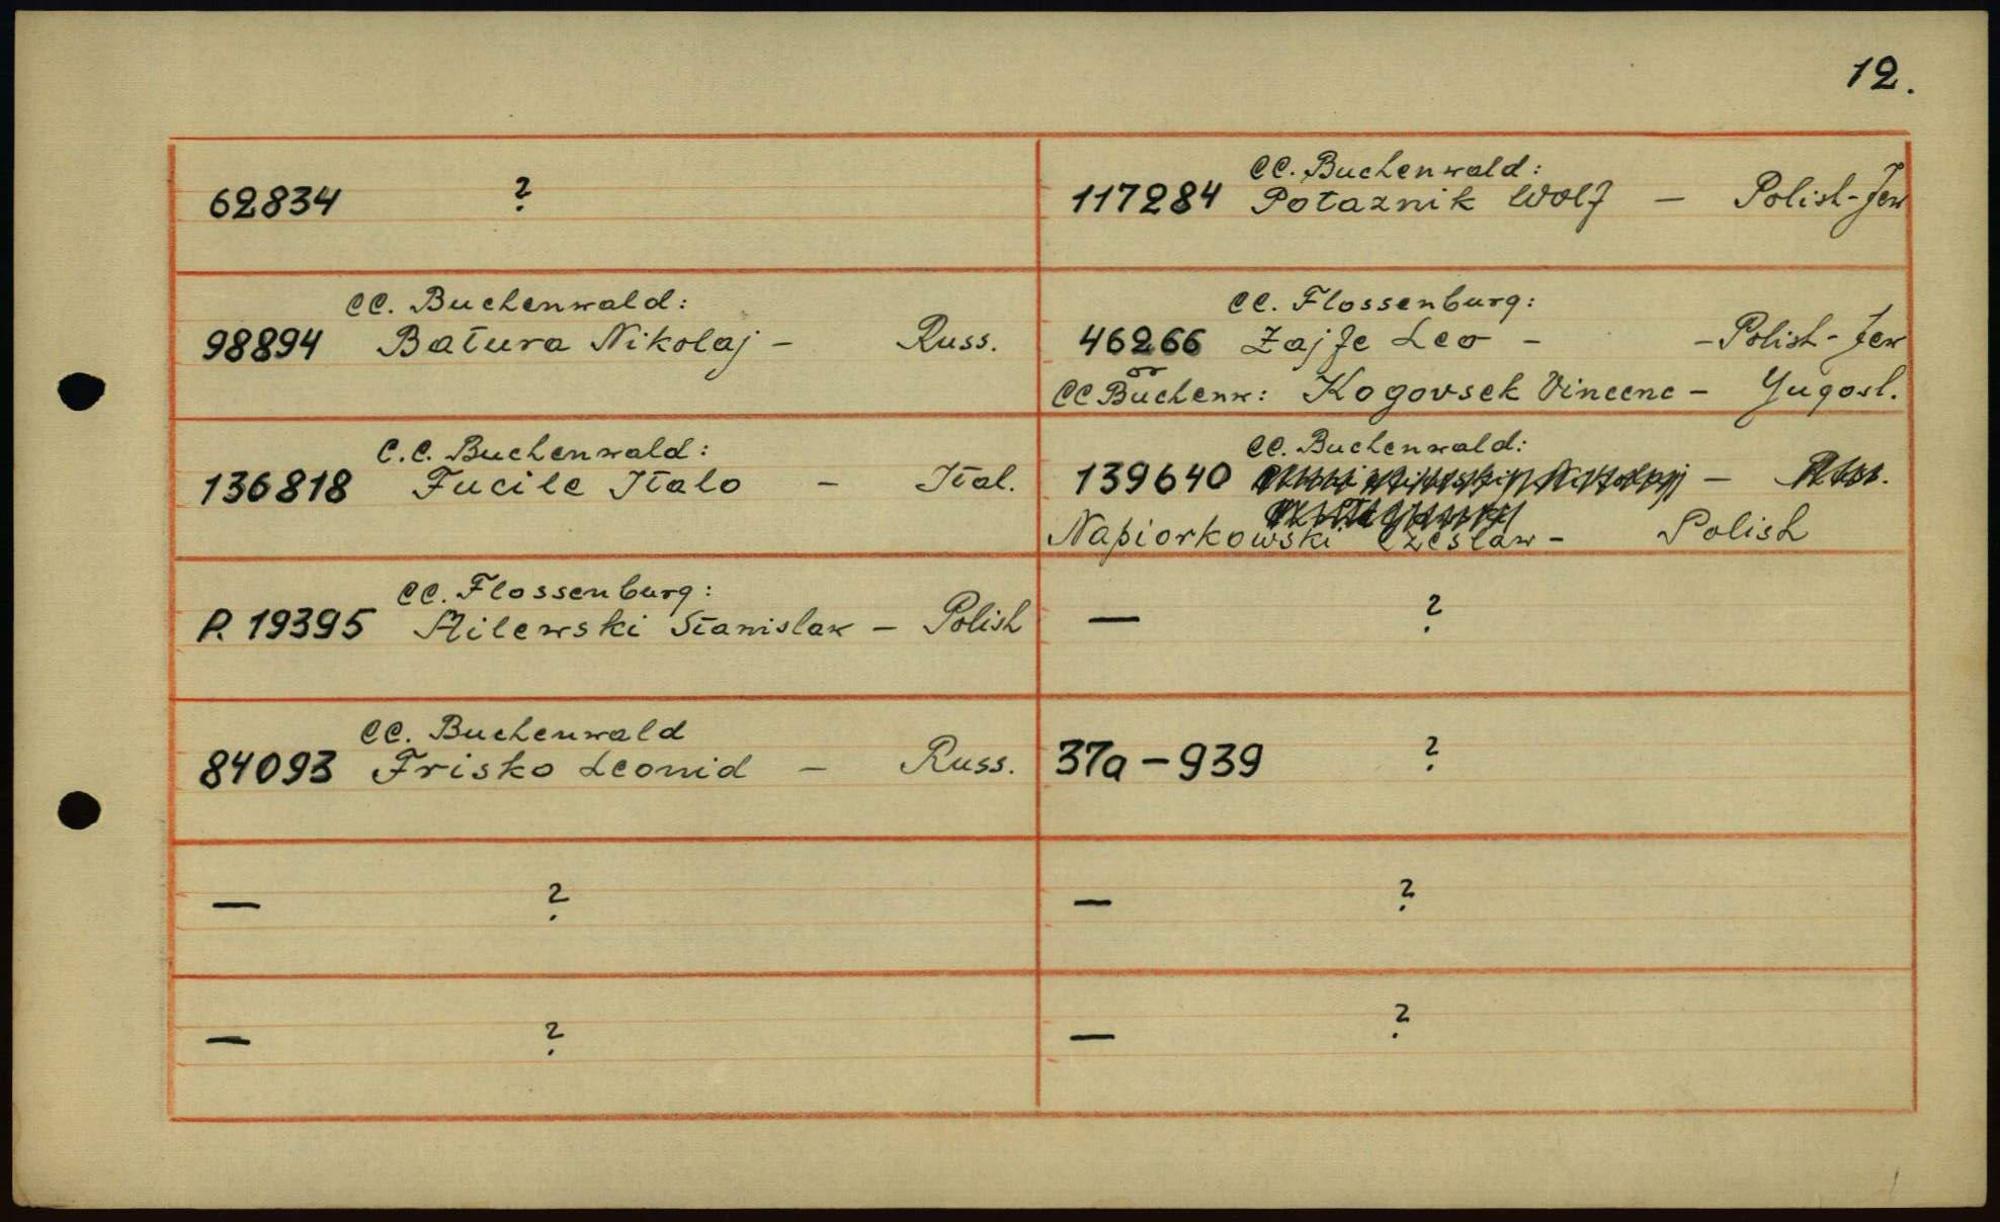 12.
62834 ?
CC. Buchenwald:
98894 Batura Nikolaj - Russ.
C.C. Buchenwald:
136818 Fucile Italo - Ital.
CC. Flossenburg:
P. 19395 Milewski Stanislaw - Polish
CC. Buchenwald
84093 Frisko Leonid - Russ.
— ?
— ?
CC. Buchenwald:
117284 Potaznik Wolf - Polish-Jew
CC. Flossenburg:
46266 Zajfe Leo - - Polish-Jew
or
CC Buchenw: Kogovsek Vincenc - Yugosl.
CC. Buchenwald:
139640 -
Napiorkowski Czeslaw - Polish
— ?
37a - 939 ?
— ?
— ?